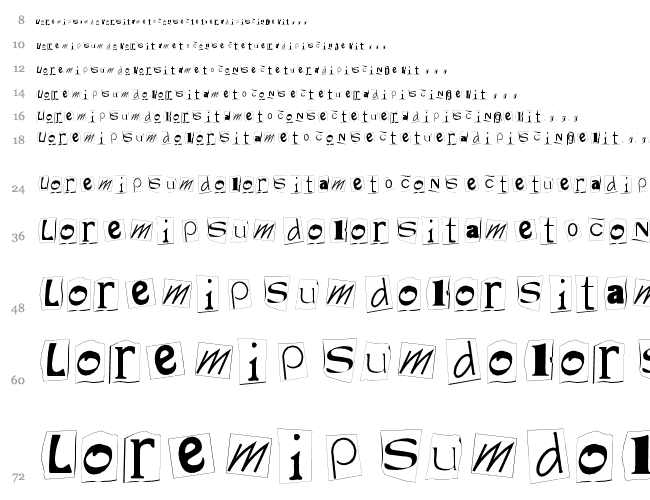 8 Loremipsumdolorsitametoconsectetueradipiscingelit,,,
10 Loremipsumdolorsitametoconsectetueradipiscingelit,,,
12 Loremipsumdolorsitametoconsectetueradipiscingelit,,,
14 Loremipsumdolorsitametoconsectetueradipiscingelit,,,
16 Loremipsumdolorsitametoconsectetueradipiscingelit,,,
18 Loremipsumdolorsitametoconsectetueradipiscingelit,,
24 Loremipsumdolorsitametoconsectetueradip
36 Loremipsumdolorsitametocon
48 Loremipsumdolorsitam
60 Loremipsumdolors
72 Loremipsumdol